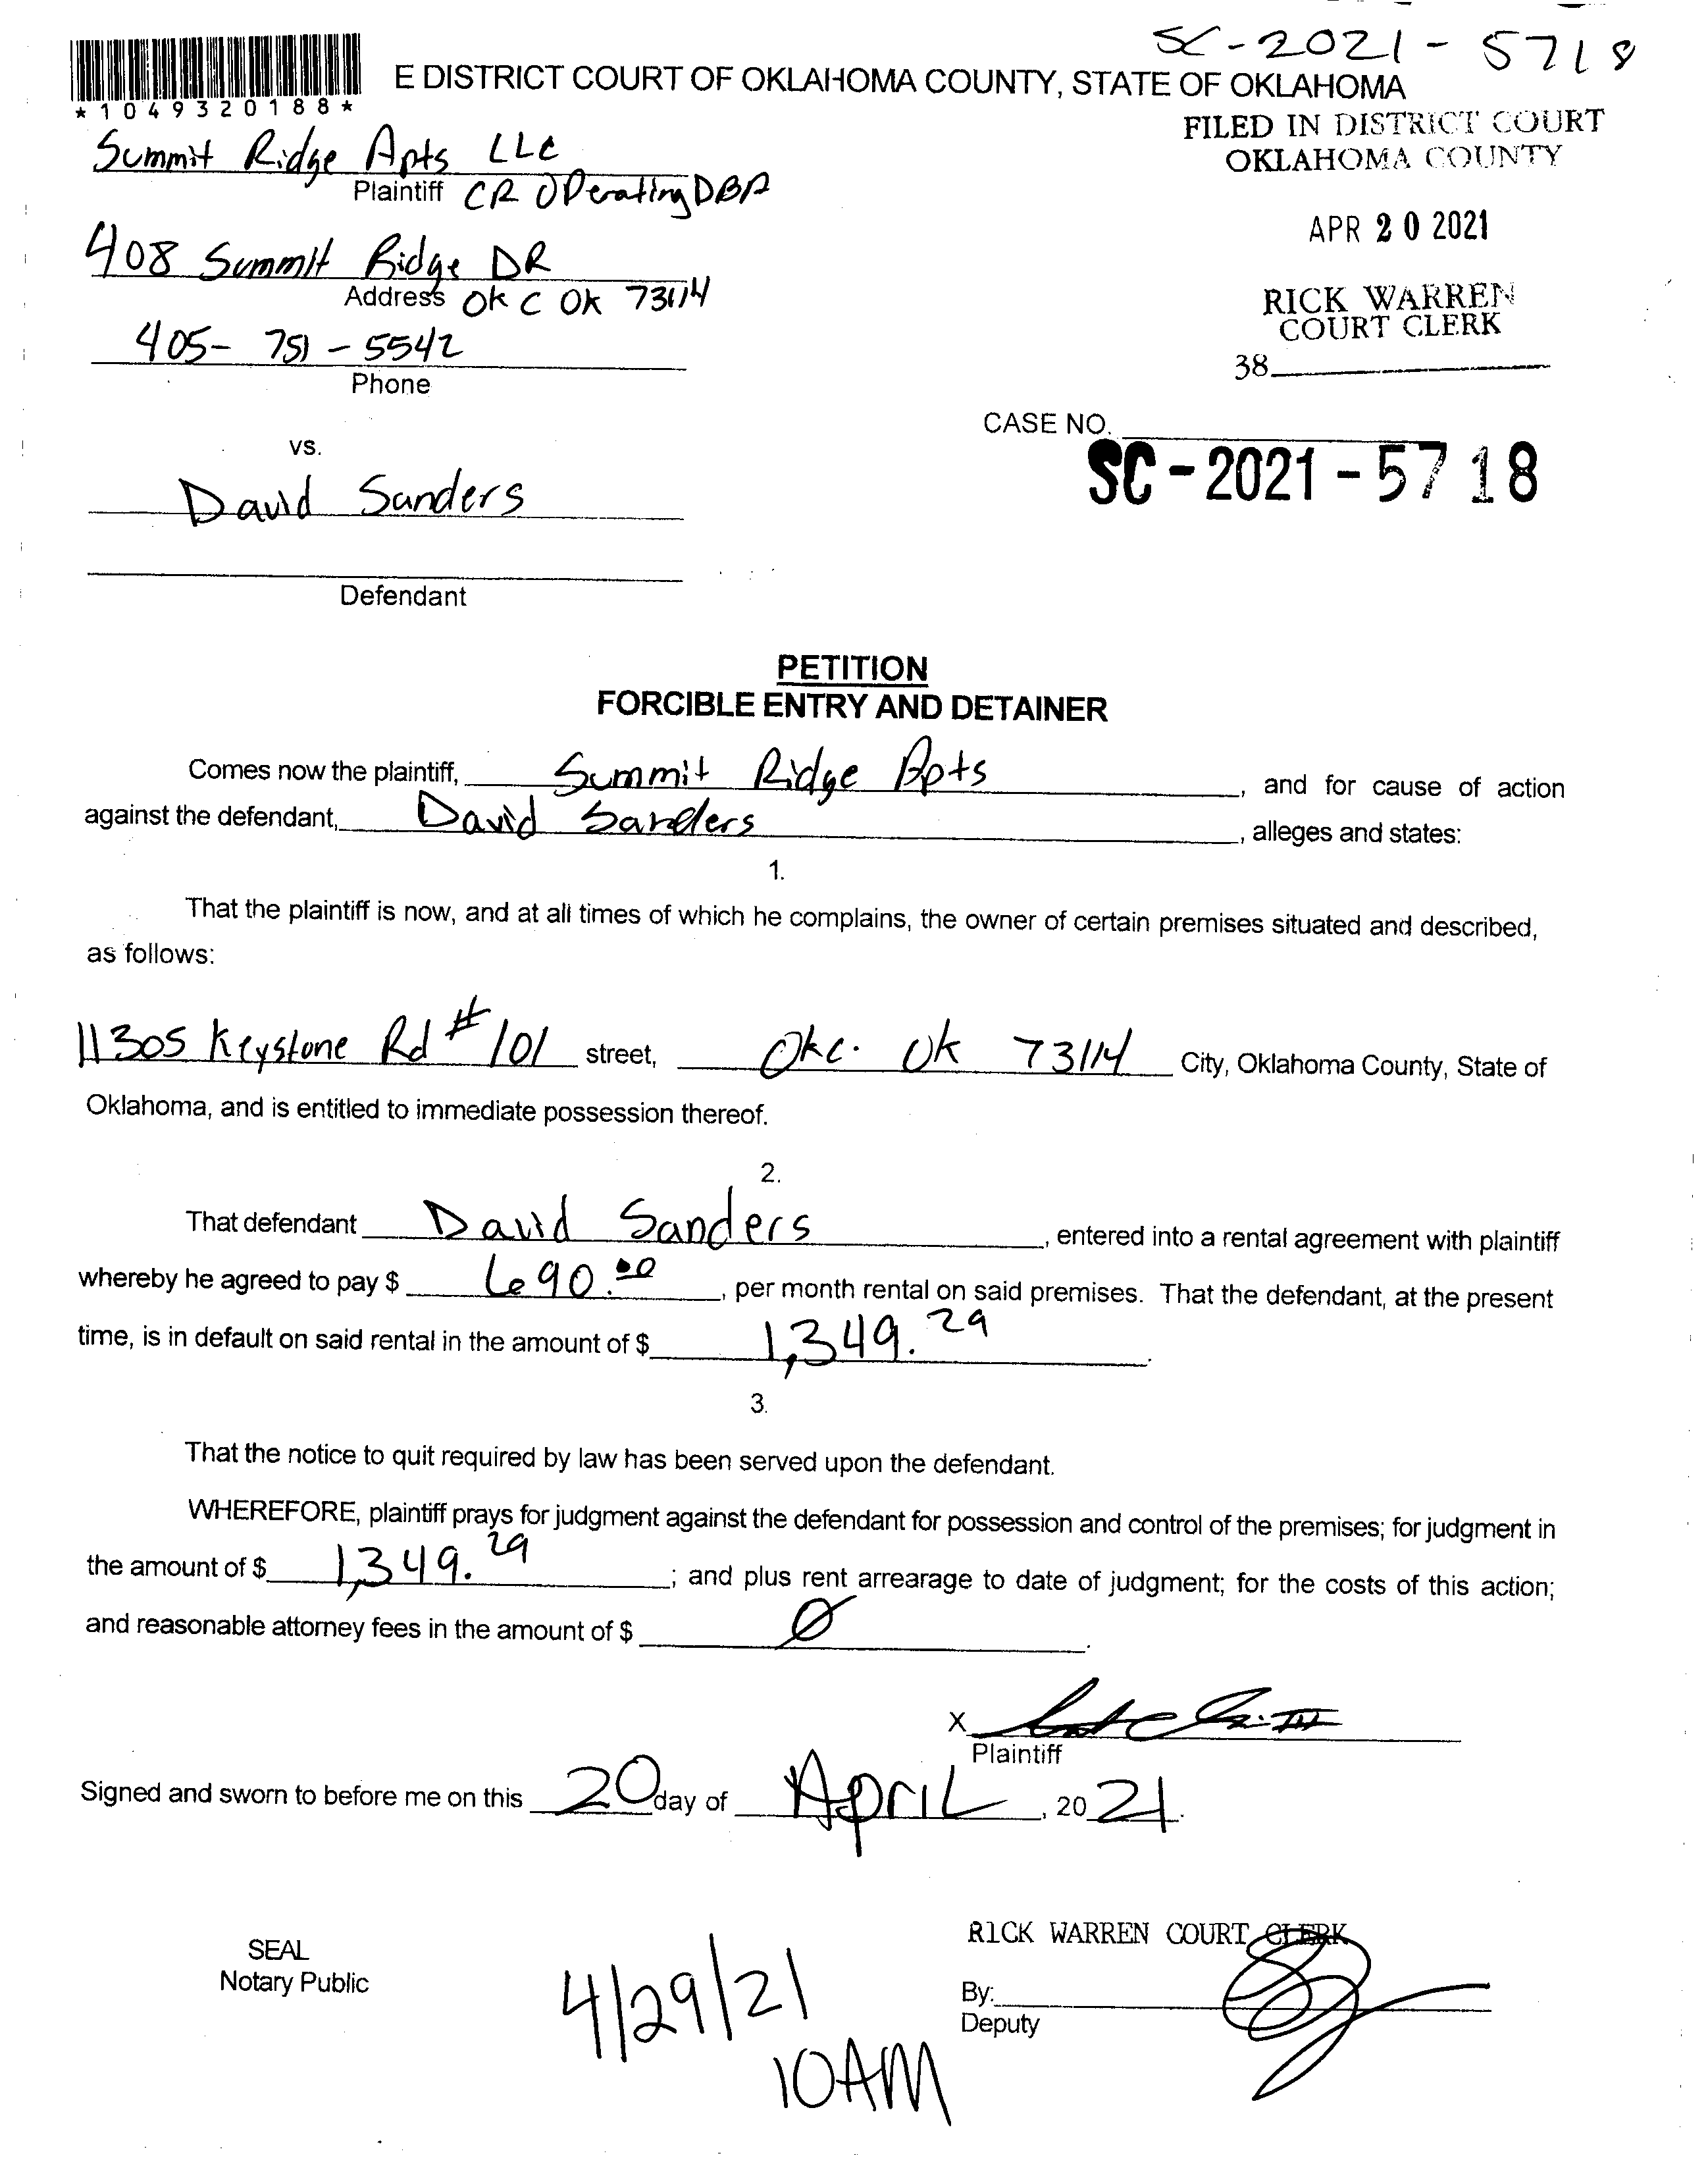 SC-2021-5718
E DISTRICT COURT OF OKLAHOMA COUNTY, STATE OF OKLAHOMA
*1049320188*
FILED IN DISTRICT COURT
OKLAHOMA COUNTY
Summit Ridge Apts LLC
Plaintiff CR Operating DBA
APR 20 2021
408 Summit Ridge DR
Address OKC OK 73114
RICK WARREN
COURT CLERK
405-751-5542
38
Phone
CASE NO.
SC-2021-5718
vs.
David Sanders
Defendant
PETITION
FORCIBLE ENTRY AND DETAINER
Comes now the plaintiff, Summit Ridge Apts, and for cause of action
against the defendant, David Sanders, alleges and states:
1.
That the plaintiff is now, and at all times of which he complains, the owner of certain premises situated and described,
as follows:
11305 Keystone Rd #101 street, Okc. Ok 73114 City, Oklahoma County, State of
Oklahoma, and is entitled to immediate possession thereof.
2.
That defendant David Sanders, entered into a rental agreement with plaintiff
whereby he agreed to pay $ 690.00, per month rental on said premises. That the defendant, at the present
time, is in default on said rental in the amount of $ 1,349.29.
3.
That the notice to quit required by law has been served upon the defendant.
WHEREFORE, plaintiff prays for judgment against the defendant for possession and control of the premises; for judgment in
the amount of $ 1,349.29; and plus rent arrearage to date of judgment; for the costs of this action;
and reasonable attorney fees in the amount of $ Ø.
X
Plaintiff
Signed and sworn to before me on this 20 day of April, 2021.
RICK WARREN COURT CLERK
SEAL
Notary Public
4/29/21
10AM
By:
Deputy